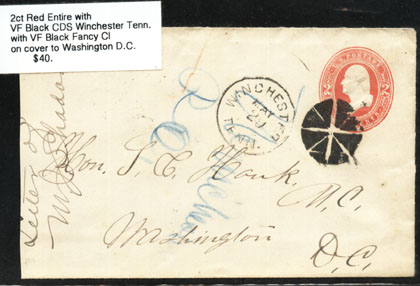 2ct Red Entire with
VF Black CDS Winchester Tenn.
with VF Black Fancy Cl
on cover to Washington D.C.
$40.
WINCHESTER
20
TENN.
Letter of
Hon. L. C. Houk, M.C.
Washington
D.C.